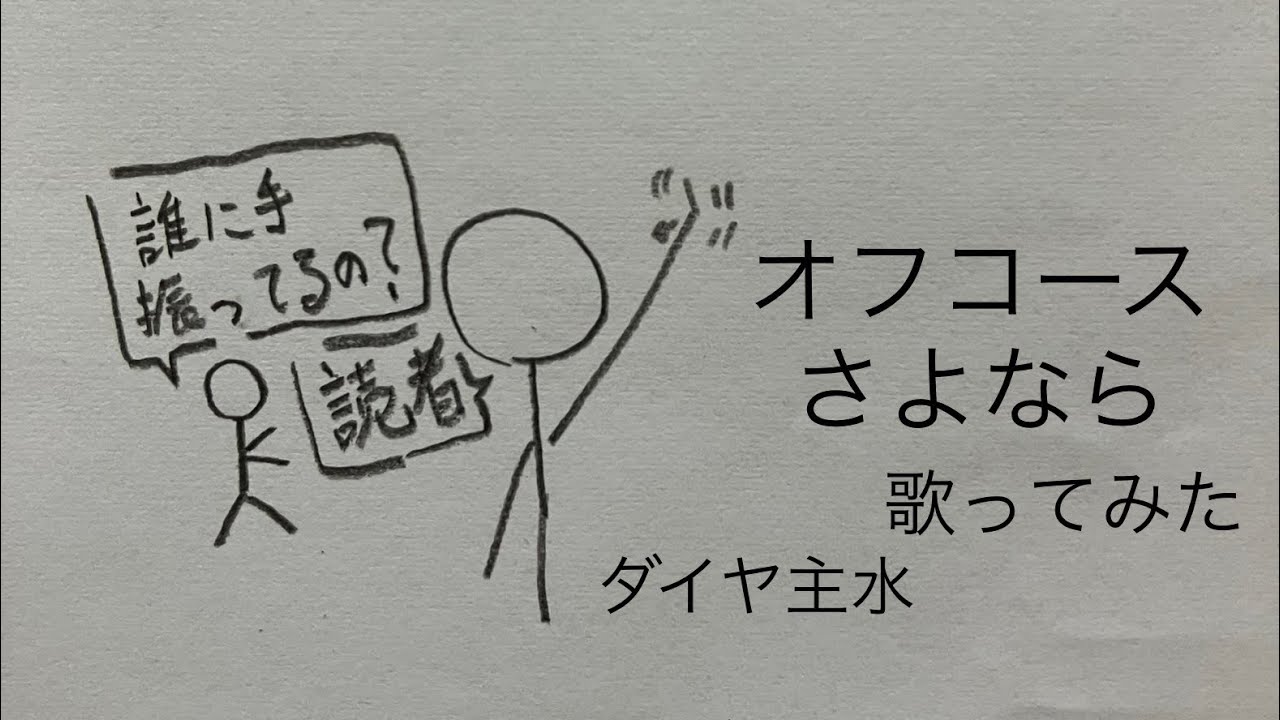 誰に手
振ってるの?
読者
オフコース
さよなら
歌ってみた
ダイヤ主水